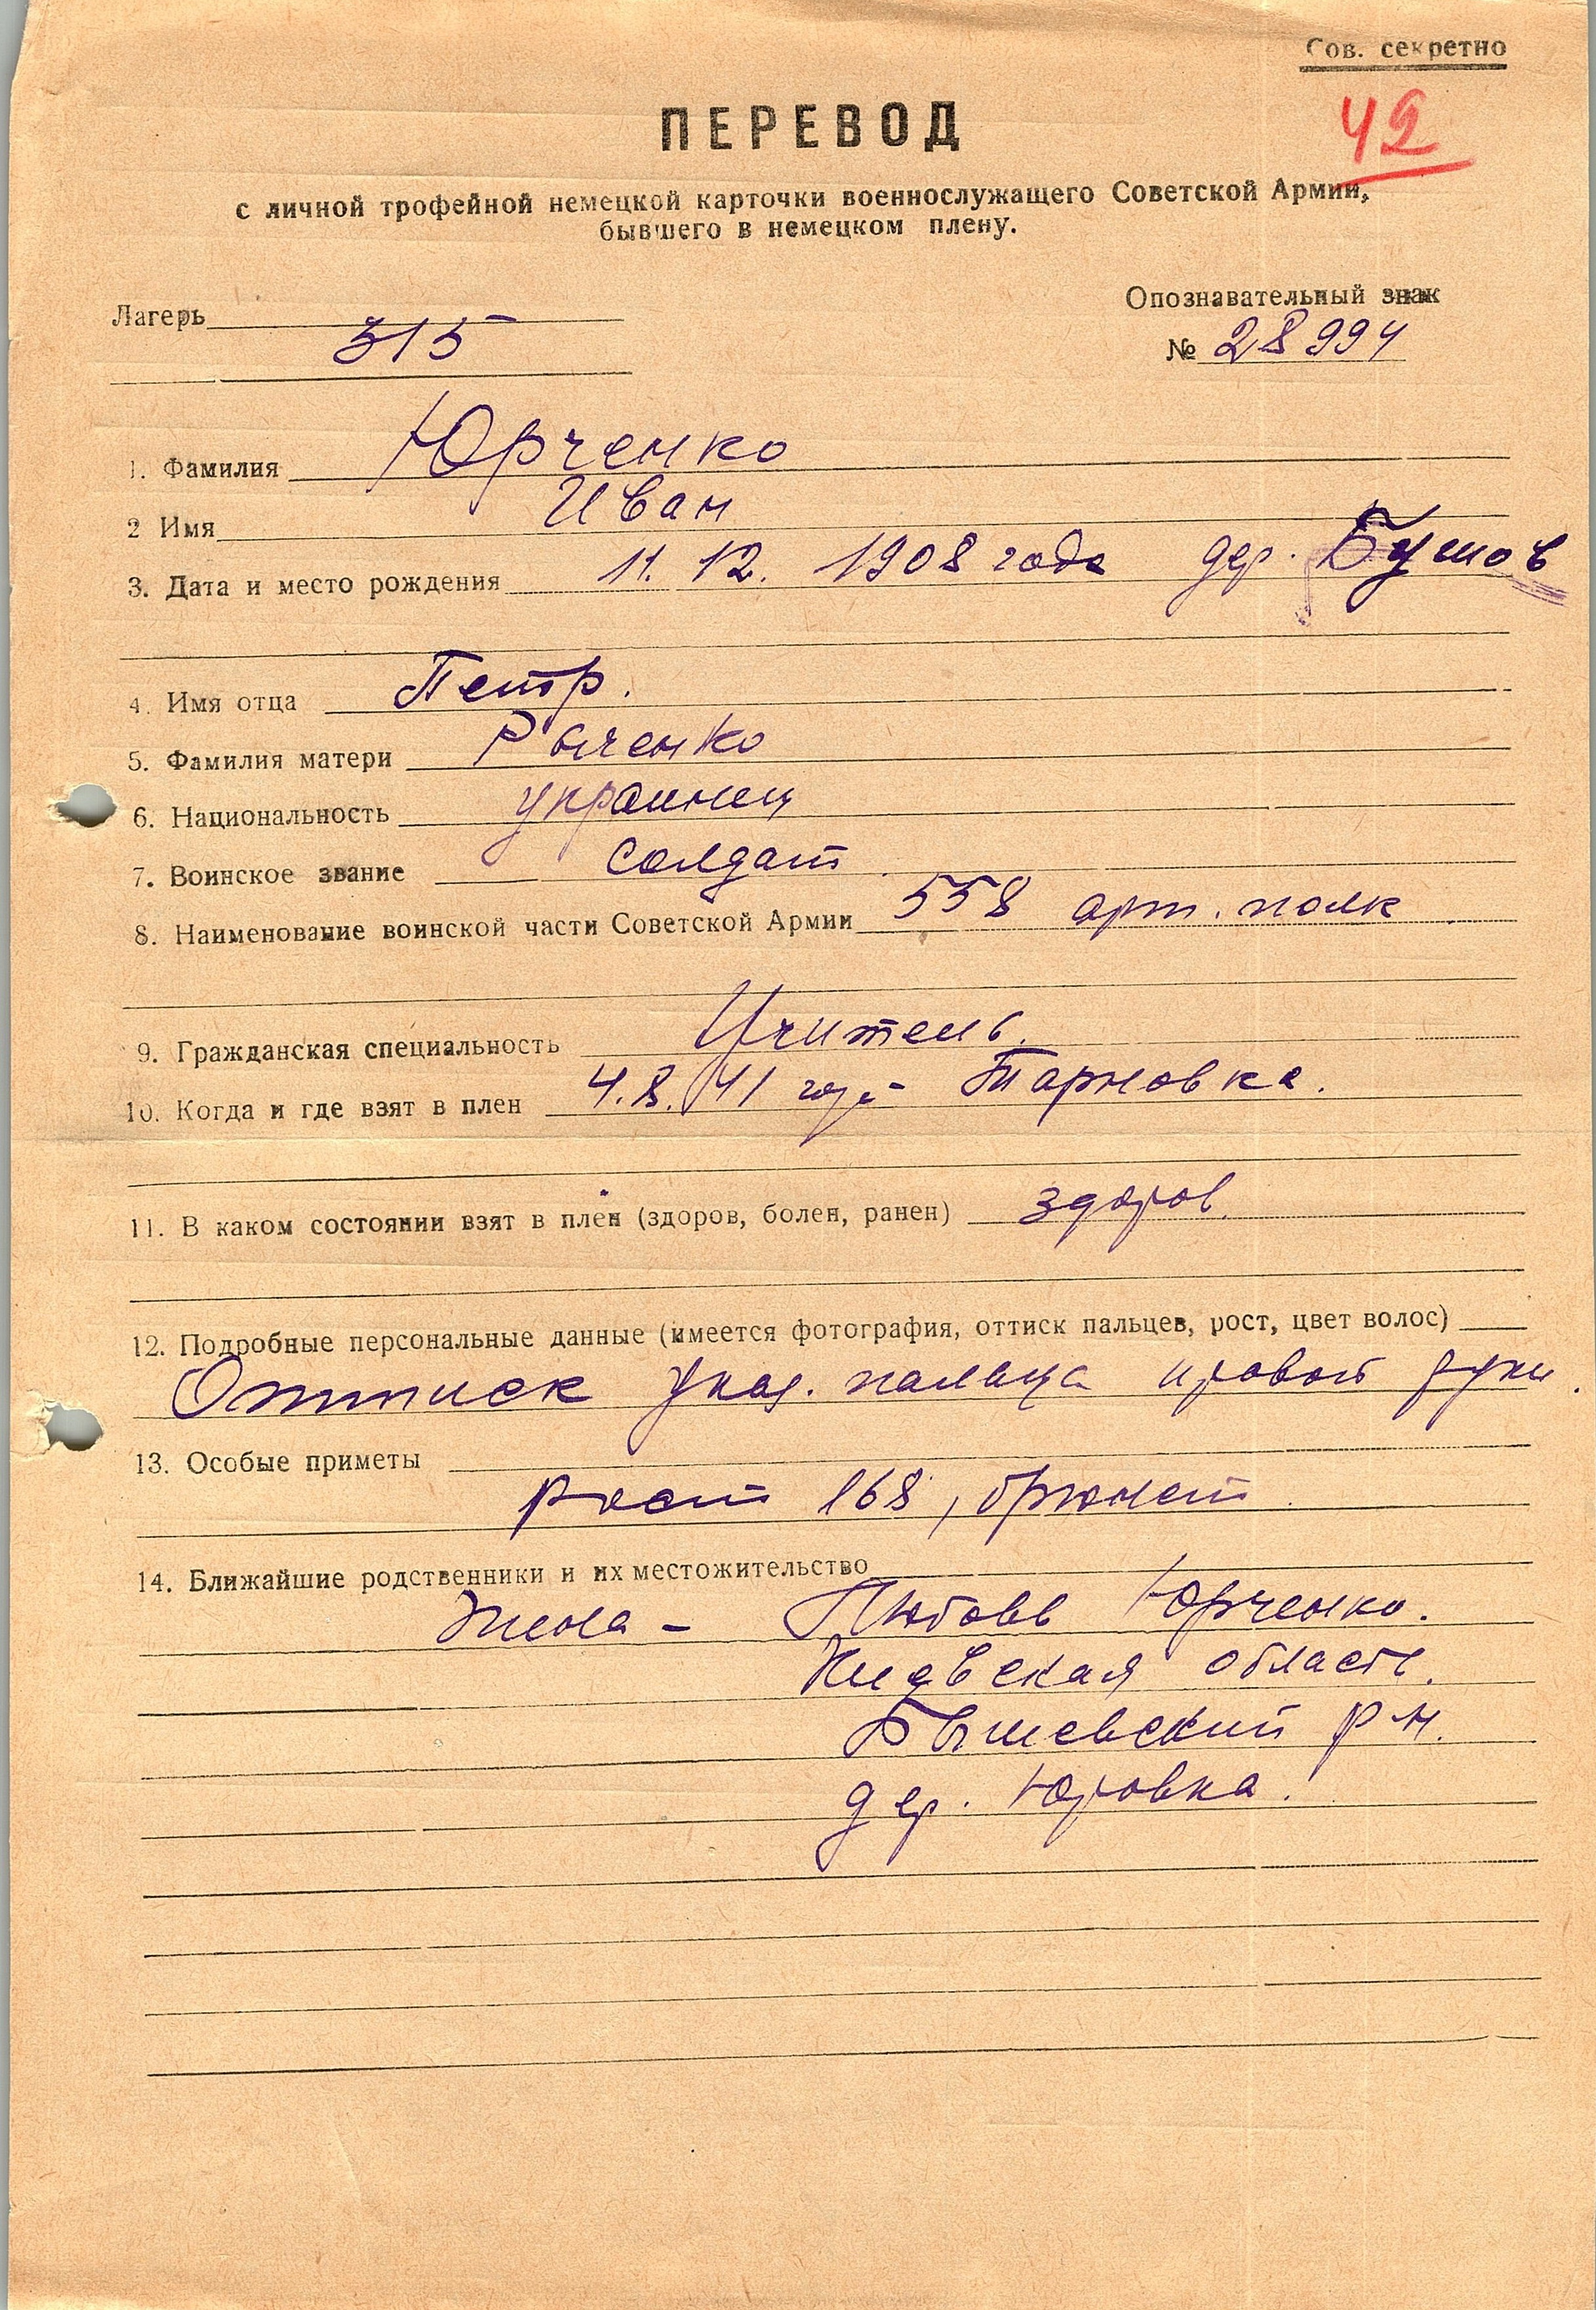 Сов. секретно
42
ПЕРЕВОД
с личной трофейной немецкой карточки военнослужащего Советской Армии,
бывшего в немецком плену.
Опознавательный знак
Лагерь 315
№ 28994
1. Фамилия Юрченко
2 Имя Иван
3. Дата и место рождения 11. 12. 1908 года дер.
4. Имя отца Петр.
5. Фамилия матери
6. Национальность украинец
7. Воинское звание солдат.
8. Наименование воинской части Советской Армии 558 арт. полк.
9. Гражданская специальность Учитель.
10. Когда и где взят в плен 4.8.41 года Тарновка.
11. В каком состоянии взят в плен (здоров, болен, ранен) здоров.
12. Подробные персональные данные (имеется фотография, оттиск пальцев, рост, цвет волос)
Оттиск указ. пальца правой руки.
13. Особые приметы
рост 168, брюнет.
14. Ближайшие родственники и их местожительство
Жена - Любовь Юрченко.
Киевская область.
Бышевский р-н.
дер. Юровка.